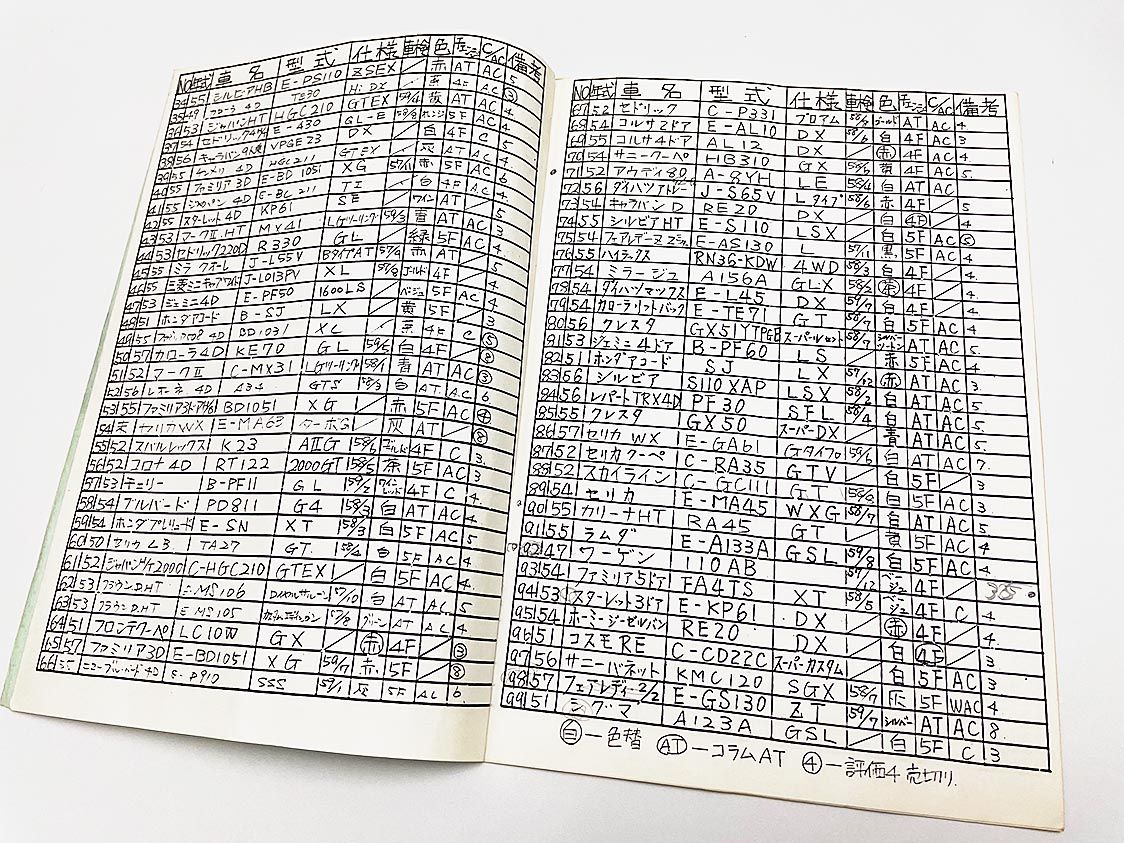 No 年式 車名 型式 仕様 車検 色 チェンジ C/AC 備考
34 55 シルビアHB E-PS110 ZSEX / 赤 AT AC 5
35 49 4D TE30 Hi DX / 4F ③
36 53 ジャパンHT HGC210 GTEX AT AC 4
37 54 セドリック E-430 GL-E 5F AC 4
38 56 キャラバン9人乗 VPGE23 DX / 白 4F C 5
39 55 4D HGC211 GTEX / AT AC 4
40 55 ファミリア3D E-BD1051 XG 57/11 赤 5F AC 6
41 55 4D E-BC211 TI / 白 4F AC
42 55 スターレット4D KP61 SE / ワイン AT / 5
43 53 マークII.HT MX41 Lグリーリング 59/3 青 AT AC
44 53 セドリック220D R330 GL / 緑 5F AC 4
45 55 ミラクオーレ J-L55V BタイプAT 57/4 赤 AT / 4
46 55 三菱ミニキャブ J-L013PV XL ゴールド 4F / 4
47 53 ジェミニ4D E-PF50 1600LS / ベージュ 5F AC 4
48 51 ホンダアコード B-SJ LX / 黄 5F / 3
49 55 4D BD1031 XL / 4F C ⑤
50 57 カローラ4D KE70 GL 59/6 白 4F / ⑧
51 52 マークII C-MX31 Lグリーリング 青 AT AC ③
52 56 4D A34 GTS 白 AT AC 6
53 55 ファミリア3ドア BD1051 XG / 赤 5F AC ④
54 セリカWX E-MA63 ターボG / 灰 AT / ⑧
55 52 スバルレックス K23 AIIG 58/5 ゴールド 4F C 3
56 52 コロナ4D RT122 2000GT 58/5 茶 5F AC 3
57 53 チェリー B-PF11 GL 59/2 ワインレッド 4F C 4
58 54 ブルバード PD811 G4 58/3 白 AT AC 4
59 54 ホンダプレリュード E-SN XT 58/3 白 AT AC 5
60 50 セリカL3 TA27 GT. 58/4 白 5F AC 4
61 52 ジャパンHT2000 C-HGC210 GTEX / 白 5F AC 4
62 53 クラウンD.HT E-MS106 57/10 白 AT AC 5
63 53 クラウンDHT E MS105 57/8 グリーン AT AC 4
64 51 フロンテクーペ LC10W GX / 赤 4F / ③
65 57 ファミリア3D E-BD1051 XG 59/7 赤 5F / ⑧
66 55 ニューブルーバード4D E-P910 SSS 59/1 灰 5F AC 6
No 年式 車名 型式 仕様 車検 色 チェンジ C/AC 備考
67 52 セドリック C-P331 ブロアム 58/5 ゴールド AT AC 4
68 54 コルサ2ドア E-AL10 DX 58/6 白 4F AC 3
69 55 コルサ4ドア AL12 DX / 赤 4F AC 4
70 54 サニークーペ HB310 GX 58/5 黄 4F AC 5
71 52 アウディ80 A-8YH LE 58/4 白 AT AC
72 56 ダイハツアトレー J-S65V Lタイプ 58/6 赤 4F / 5
73 54 キャラバンD RE20 DX / 白 4F / 4
74 55 シルビアHT E-S110 LSX / 白 5F AC ⑤
75 54 フェアレディーZ E-AS130 L 57/11 黒 5F AC 5
76 55 ハイラックス RN36-KDW 4WD 58/3 白 4F / 4
77 54 ミラージュ A156A GLX 58/2 赤 4F / 4
78 54 ダイハツマックス E-L45 DX 57/9 白 4F / 4
79 54 カローラリフトバック E-TE71 GT 58/6 白 5F AC 4
80 56 クレスタ GX51YTPGB スーパールセント 58/4 シルバーツートン AT AC 5
81 53 ジェミニ4ドア B-PF60 LS / 赤 5F AC 4
82 51 ホンダアコード SJ LX 57/12 赤 AT AC 3
83 56 シルビア S110XAP LSX 58/2 白 AT AC 5
84 56 レパートTRX4D PF30 SFL 58/4 白 AT AC 4
85 55 クレスタ GX50 スーパーDX / 青 AT AC 5
86 57 セリカWX E-GA61 Gタイプ 59/6 白 AT AC 7
87 52 セリカクーペ C-RA35 GTV / 白 5F AC 4
88 52 スカイライン C-GC111 GT 58/3 白 5F AC 3
89 54 セリカ E-MA45 WXG 58/7 白 AT AC 5
90 55 カリーナHT RA45 GT / 黄 5F AC 4
91 55 ラムダ E-A133A GSL 59/8 白 5F AC 4
92 47 ワーゲン 110AB / 57/12 ベージュ 4F /
93 54 ファミリア5ドア FA4TS XT 58/5 ベージュ 4F C 4
94 53 スターレット3ドア E-KP61 DX / 赤 4F / 4
95 54 ホーミージーゼルバン RE20 DX / 白 4F / 3
96 51 コスモRE C-CD22C スーパーカスタム / 白 5F AC 3
97 56 サニーバネット KMC120 SGX 58/7 灰 5F WAC 4
98 57 フェアレディー2/2 E-GS130 ZT 59/7 シルバー AT AC 8
99 51 シグマ A123A GSL / 白 5F C 3
白—色替 AT—コラムAT ④—評価4売切り.